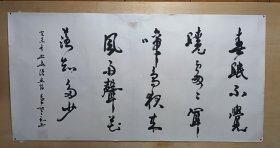 春眠不覺
曉處〻聞
啼鳥夜來
風雨聲花
落知多少